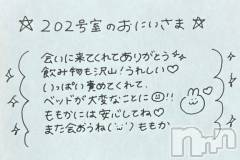 ☆202号室のおにいさま☆
会いに来てくれてありがとう
飲み物も沢山!うれしい♡
いっぱい責めてくれて、
ベッドが大変なことに!!
ももかには安心してね♡
また会おうね(¨) ももか